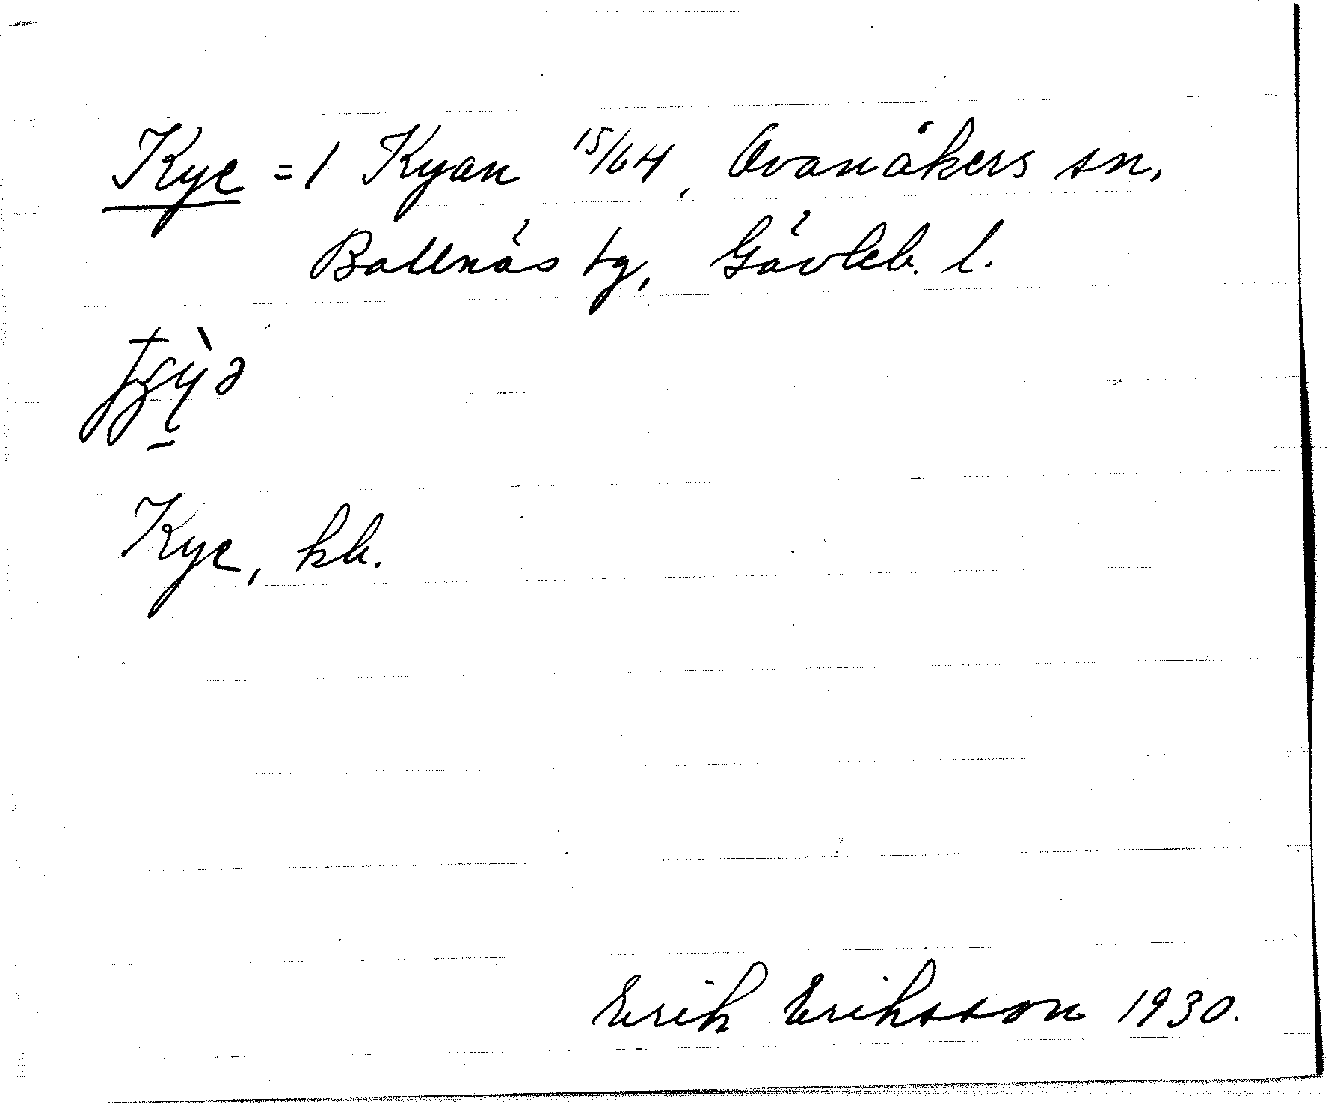 Kye = 1 Kyan 15/64, Ovanåkers sn,
Bollnäs tg, Gävleb. l.
Kye, kb.
Erik Eriksson 1930.